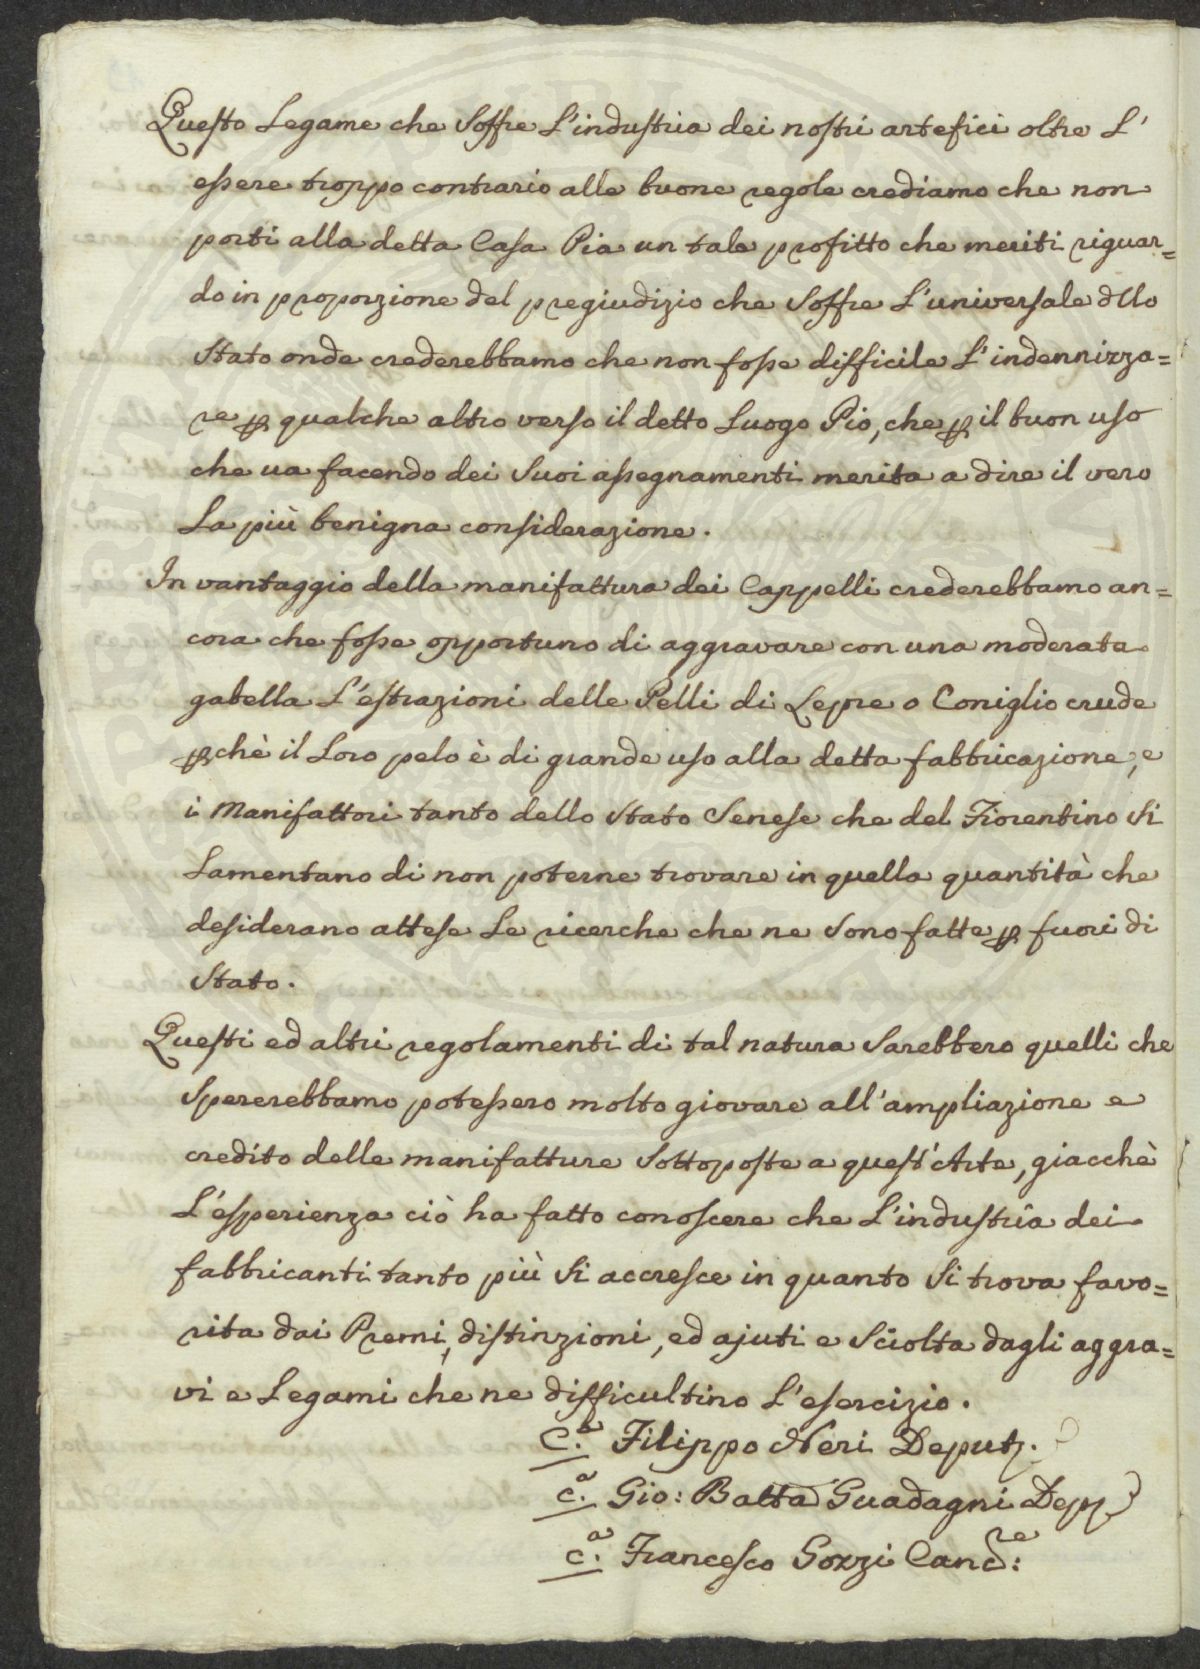 Questo Legame che Soffre L'industria dei nostri artefici oltre L'
essere troppo contrario alle buone regole crediamo che non
porti alla detta Casa Pia un tale profitto che meriti riguar=
do in proporzione del pregiudizio che Soffre L'universale dllo
Stato onde crederebbamo che non fosse difficile L'indennizza=
re ꝑ qualche altro verso il detto Luogo Pio, che ꝑ il buon uso
che va facendo dei Suoi assegnamenti merita a dire il vero
La più benigna considerazione.
In vantaggio della manifattura dei Cappelli crederebbamo an=
cora che fosse opportuno di aggravare con una moderata
gabella L'estrazioni delle Pelli di Lepre o Coniglio crude
ꝑchè il Loro pelo è di grande uso alla detta fabbricazione, e
i Manifattori tanto dello Stato Senese che del Fiorentino Si
Lamentano di non poterne trovare in quella quantità che
desiderano attese Le ricerche che ne Sono fatte ꝑ fuori di
Stato.
Questi ed altri regolamenti di tal natura Sarebbero quelli che
Spererebbamo potessero molto giovare all'ampliazione e
credito delle manifatture Sottoposte a quest'Arte, giacchè
L'esperienza ciò ha fatto conoscere che L'industria dei
fabbricanti tanto più Si accresce in quanto Si trova favo=
rita dai Premi, distinzioni, ed ajuti e Sciolta dagli aggra=
vi e Legami che ne difficultino L'esercizio.
C.a Filippo Neri Deput.
C.a Gio: Batta Guadagni Dep
C.a Francesco Gozzi Canc.re: